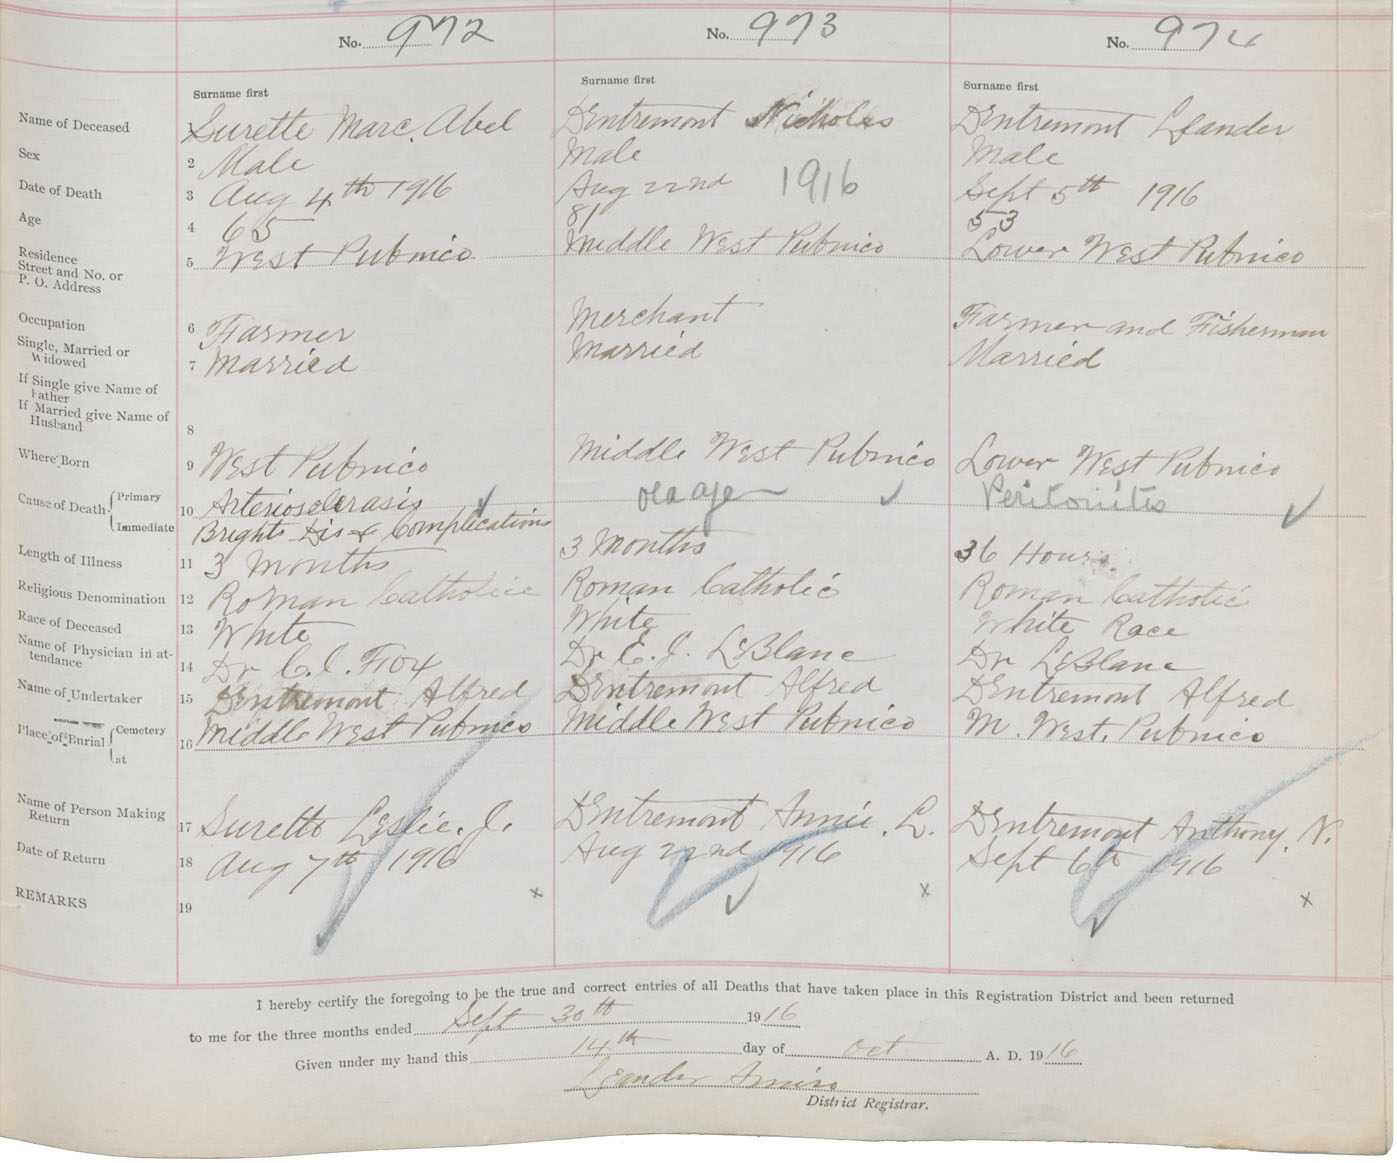 No. 972 No. 973 No. 974
Surname first Surname first Surname first
Name of Deceased 1 Surette Marc. Abel DEntremont Nicholas DEntremont Leander
Sex 2 Male Male Male
Date of Death 3 Aug 4th 1916 Aug 22nd 1916 Sept 5th 1916
Age 4 65 81 53
Residence
Street and No. or
P. O. Address 5 West Pubnico Middle West Pubnico Lower West Pubnico
Occupation 6 Farmer Merchant Farmer and Fisherman
Single, Married or
Widowed 7 Married Married Married
If Single give Name of
Father
If Married give Name of
Husband 8
Where Born 9 West Pubnico Middle West Pubnico Lower West Pubnico
Cause of Death Primary 10 Arteriosclerasis old age Peritonitis
Immediate Brights Dis & Complications
Length of Illness 11 3 Months 3 Months 36 Hours
Religious Denomination 12 Roman Catholic Roman Catholic Roman Catholic
Race of Deceased 13 White White White Race
Name of Physician in at-
tendance 14 Dr C. C. Fox Dr E. J. LeBlanc Dr LeBlanc
Name of Undertaker 15 DEntremont Alfred DEntremont Alfred DEntremont Alfred
Place of Burial Cemetery 16 Middle West Pubnico Middle West Pubnico M. West. Pubnico
at
Name of Person Making
Return 17 Surette Leslie. J. DEntremont Annie. L. DEntremont Anthony. N.
Date of Return 18 Aug 7th 1916 Aug 22nd 1916 Sept 6th 1916
REMARKS 19 x x x
I hereby certify the foregoing to be the true and correct entries of all Deaths that have taken place in this Registration District and been returned
to me for the three months ended Sept 30th 1916
Given under my hand this 14th day of Oct A. D. 1916
Leander Amiro
District Registrar.